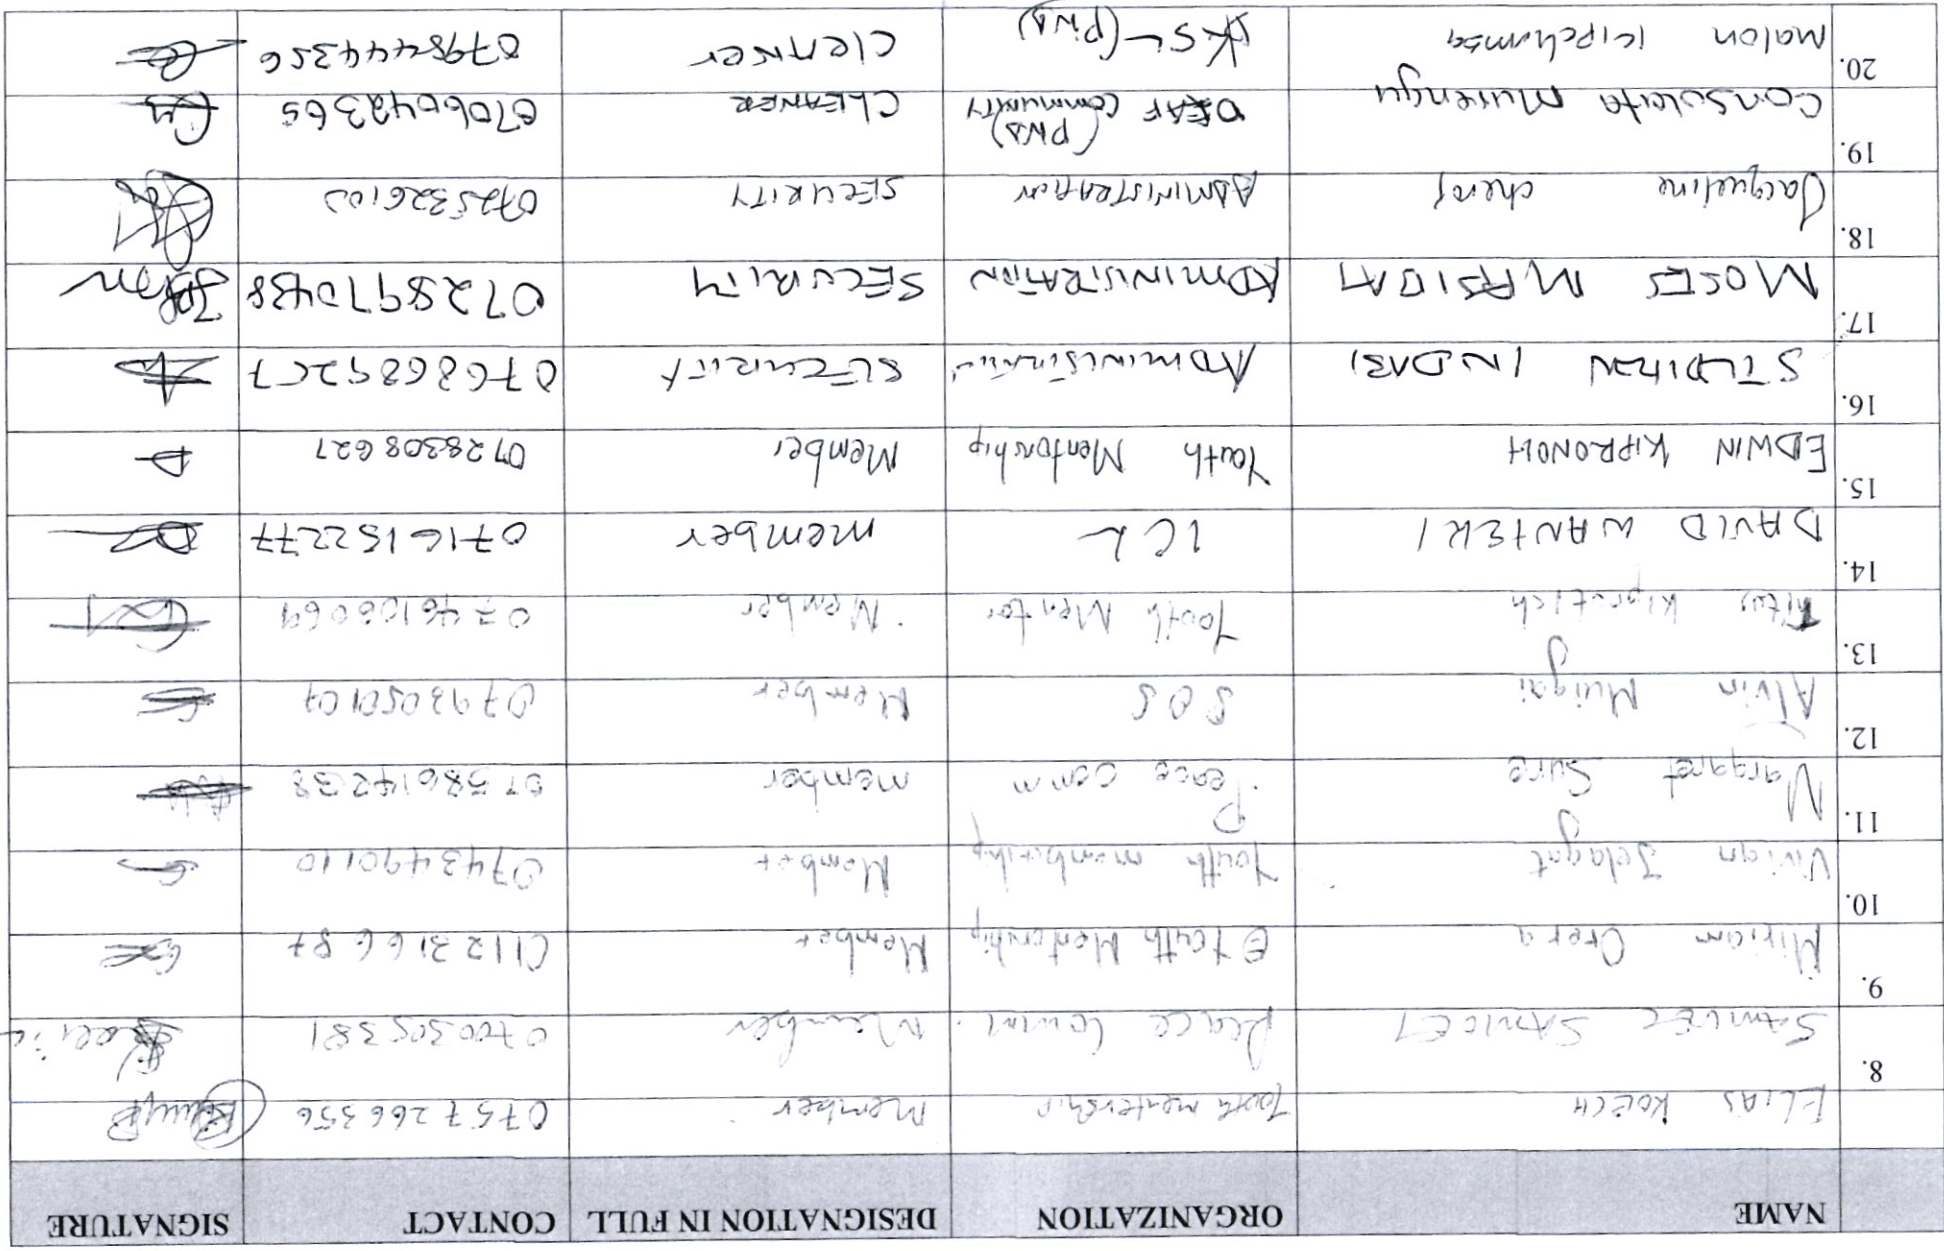 NAME ORGANIZATION DESIGNATION IN FULL CONTACT SIGNATURE
ELIAS KOECH Youth mentorship member 0757266356
8. SAMUEL SANICET Peace Comm. Member 0700305381
9. Miriam Orera Youth Mentorship Member 0112316687
10. Vivian Jelagat Youth membership Member 0743490110
11. Margaret Sure Peace comm member 0758614238
12. Alvin Muigai SOS Member 0793050107
13. Titus Kiprotich Youth Mentor Member 0746108069
14. DAVID WANTERI ICL member 0716152277
15. EDWIN KIPRONOH Youth Mentorship Member 0728308627
16. INDASI ADMINISTRATION SECURITY 0768689267
17. MOSES MASIDAT ADMINISTRATION SECURITY 0728970438
18. Jacqueline ADMINISTRATION SECURITY 0725326100
19. Consoleita Musengu DEAF COMMUNITY (PWD) CLEANER 0706042365
20. Malon Kipchumba KSL (PWD) Cleaner 0798444356